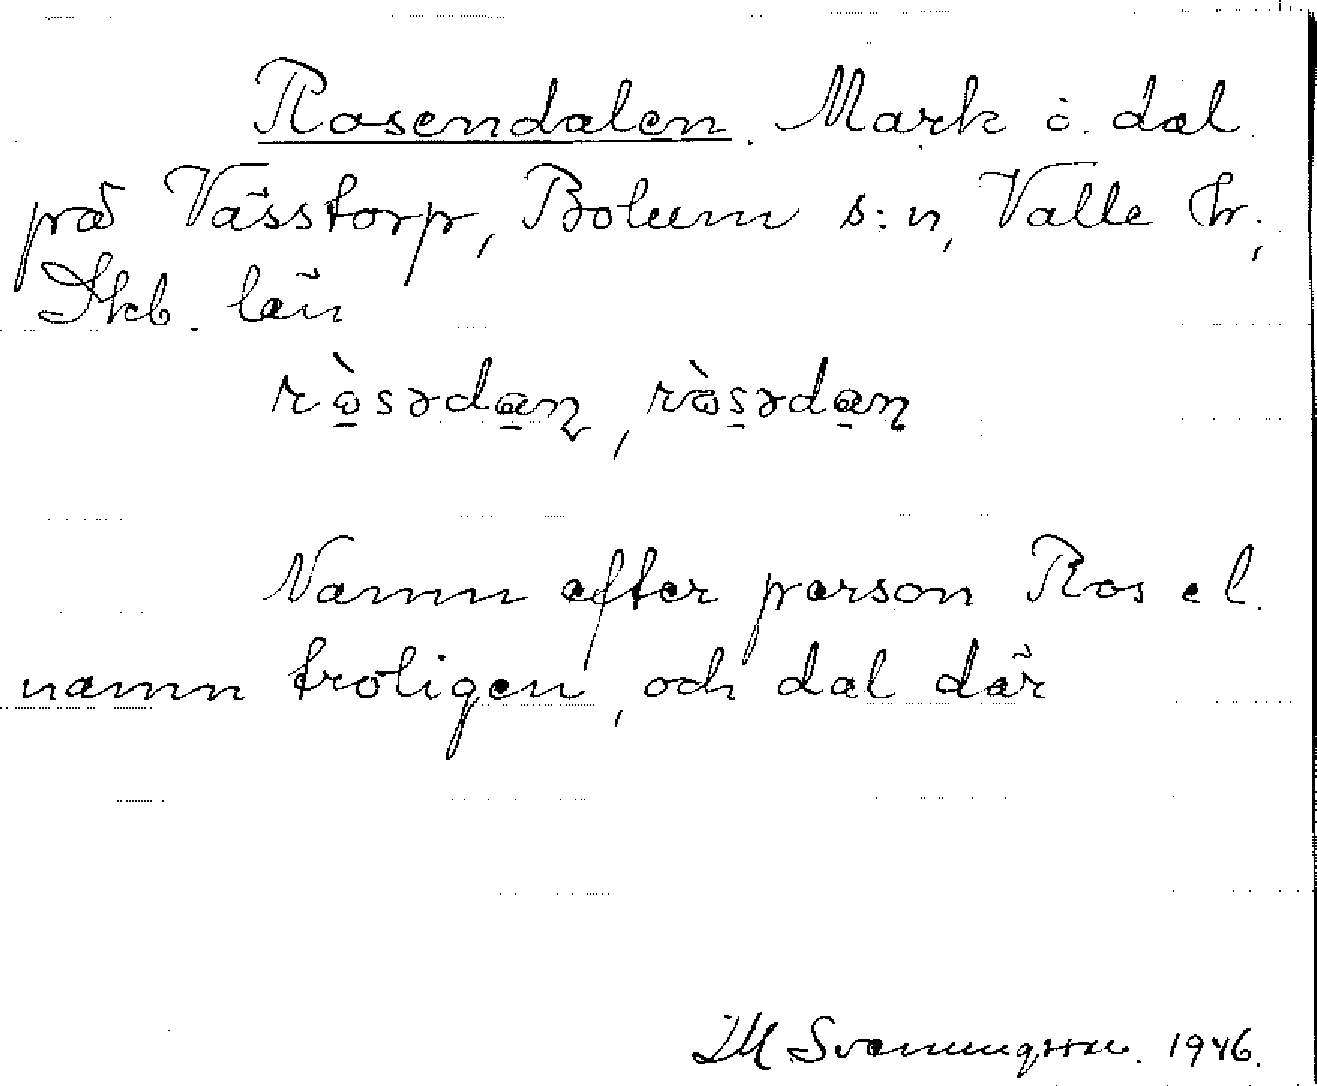 Rosendalen. Mark o. dal
på Vässtorp, Bolum s:n, Valle hr.,
Skb. län
rò̱səda̱ɳ, ròs̱əda̱ɳ
Namn efter person Ros el.
namn troligen, och dal där
IM Svenningsson. 1946.